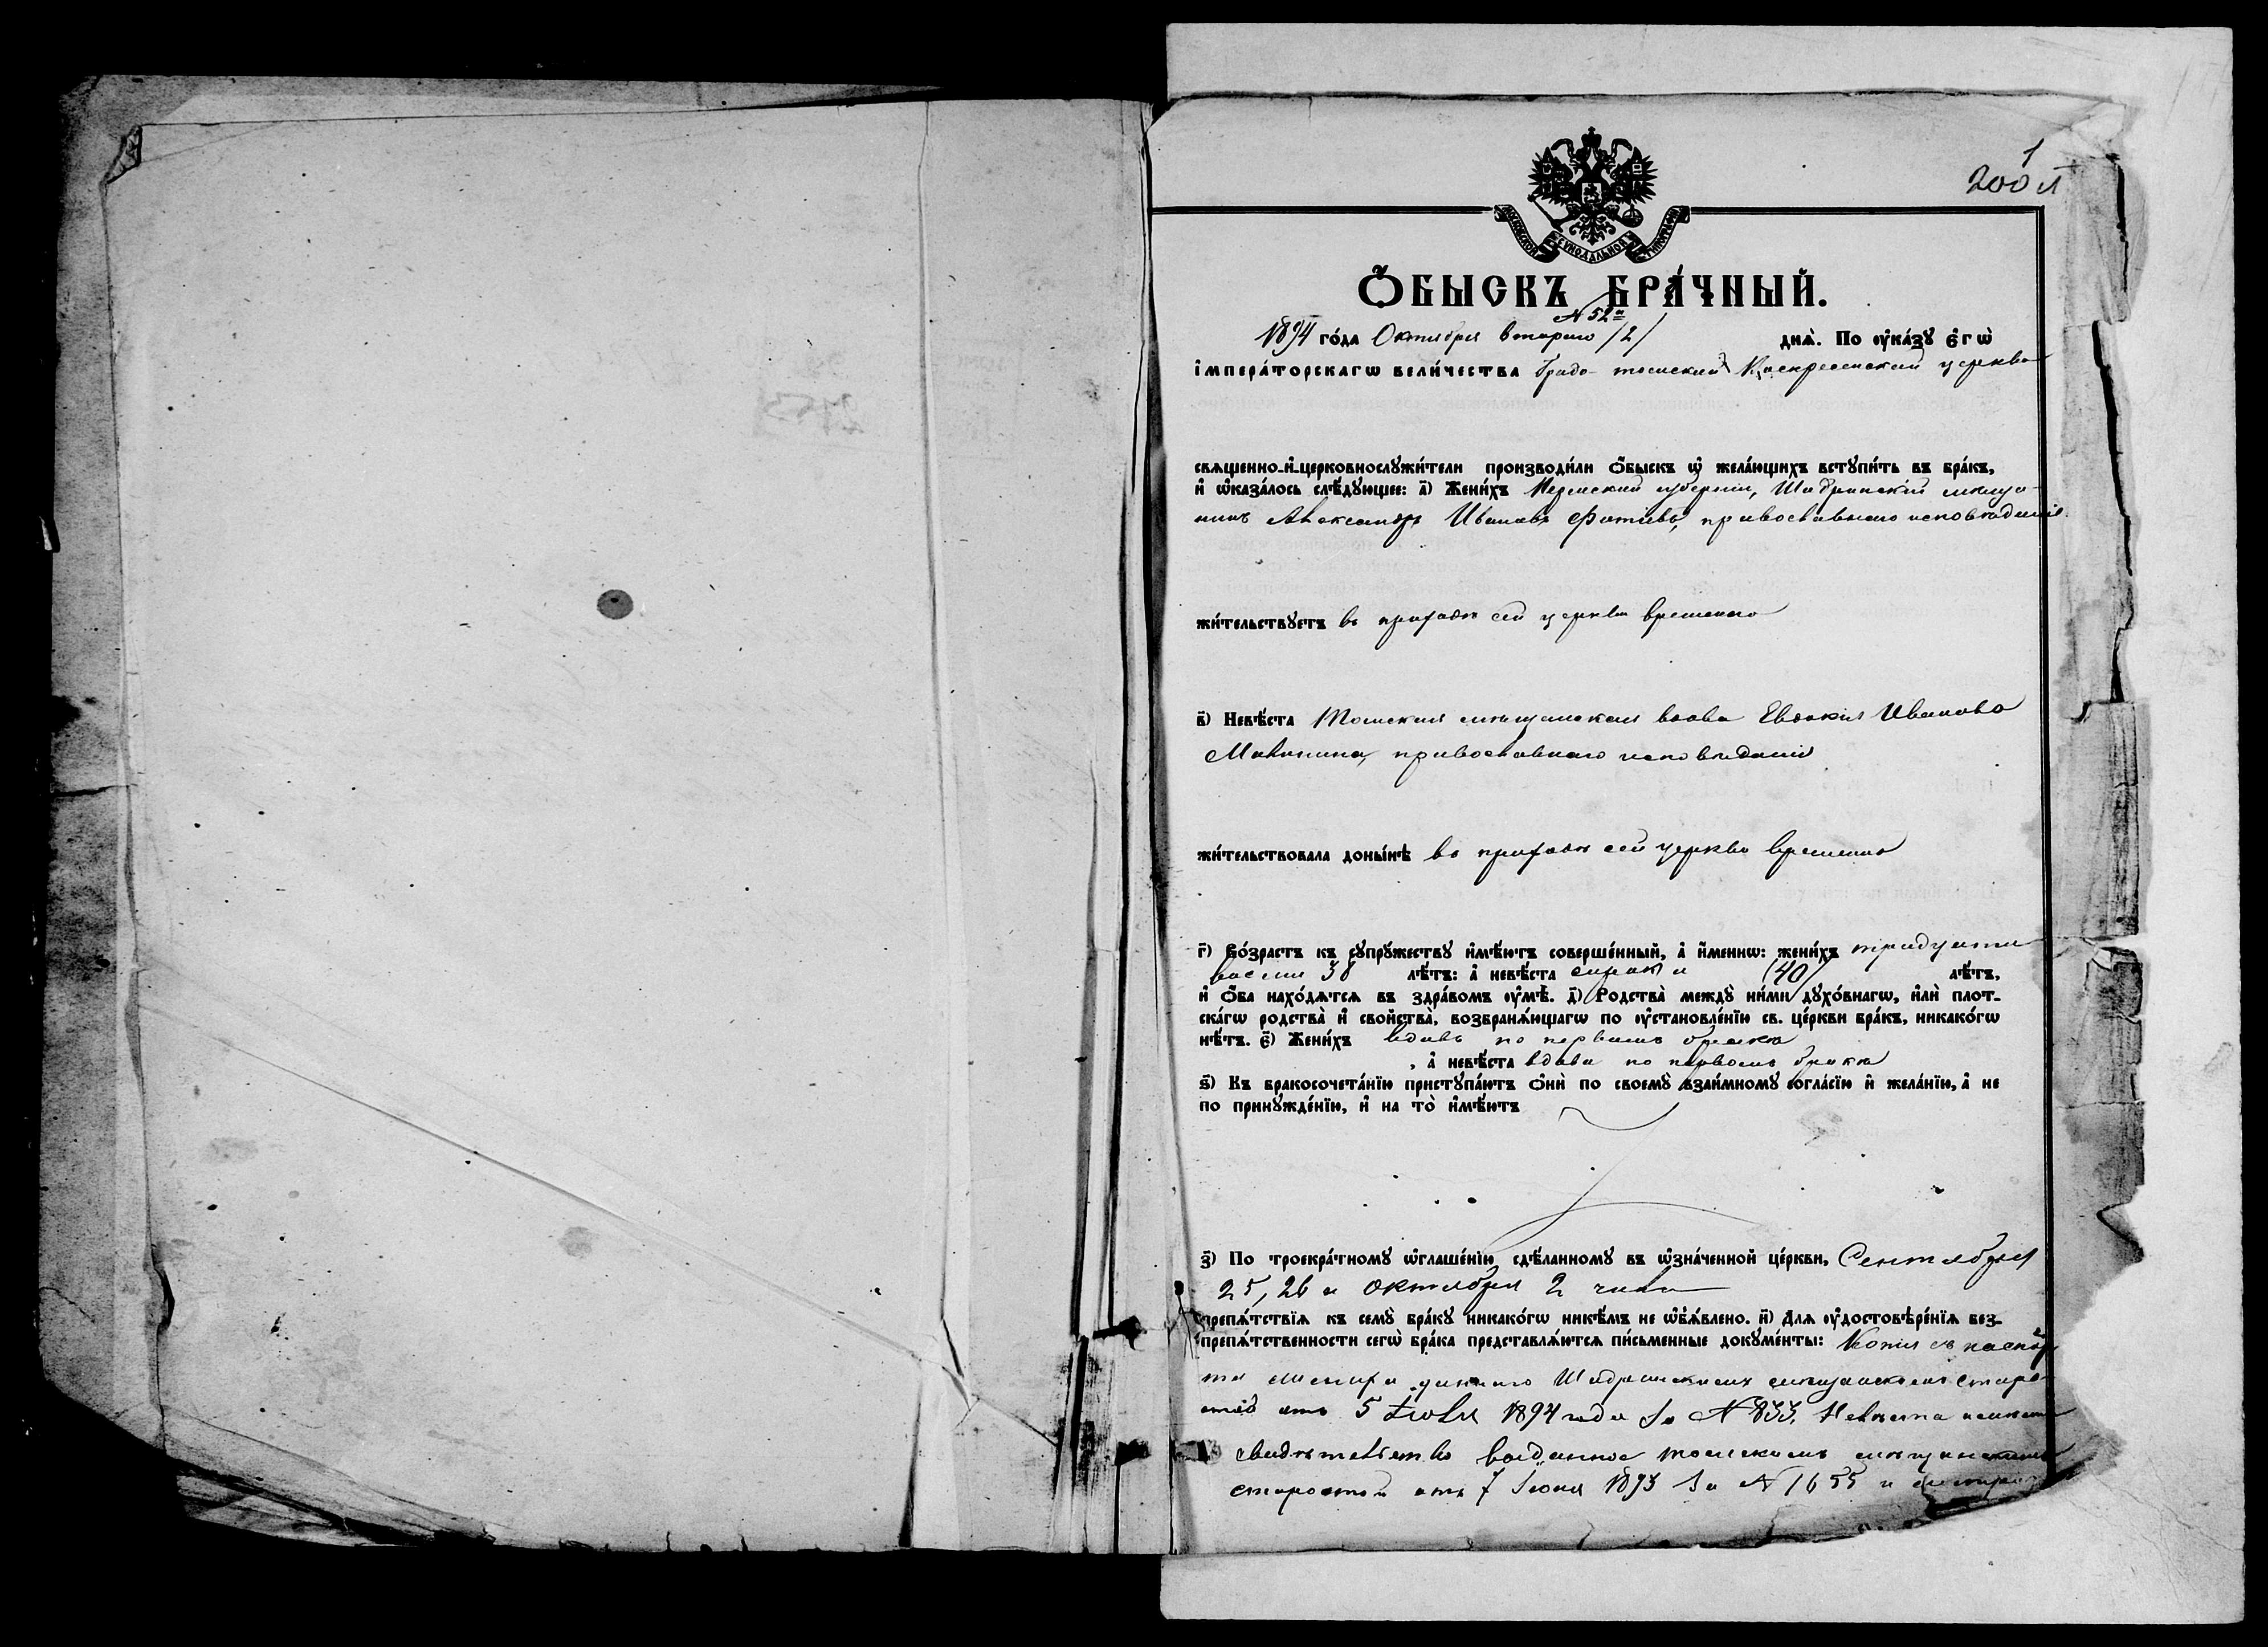 1
200 л
МОСКОВСКОЙ СѴНОДАЛЬНОЙ ТИПОГРАФІИ
Ѻ҆БЫСКЪ БРА́ЧНЫЙ.
№ 52й
1894 го́да Октября втораго /2/ днѧ̀. По ᲂу҆ка́зꙋ є҆гѡ̀
і҆мпера́торскагѡ вели́чества Градо-томской Воскресенской церкви
свѧщенно-и҆-церковнослꙋжи́тели производи́ли ѻ҆́быскъ ѡ҆ жела́ющихъ встꙋпи́ть въ бра́къ,
и҆ ѡ҆каза́лось слѣ́дꙋющее: а҃) Жени́хъ Пермской губерніи, Шадринскій мѣща-
нинъ Александръ Ивановъ Фотіевъ, православнаго исповѣданія
жи́тельствꙋетъ въ приходѣ сей церкви временно
в҃) Невѣ́ста Томская мѣщанская вдова Евдокія Иванова
Малинина, православнаго исповѣданія
жи́тельствовала доны́нѣ въ приходѣ сей церкви временно
г҃) Во́зрастъ къ сꙋпрꙋ́жествꙋ и҆мѣ́ютъ соверше́нный, а҆ и҆́меннѡ: жени́хъ тридцати
восьми 38 лѣ́тъ: а҆ невѣ́ста сорока (40) лѣ́тъ,
и҆ ѻ҆́ба нахо́дѧтсѧ въ здра́вомъ ᲂу҆мѣ̀. д҃) Родства̀ междꙋ̀ ни́ми дꙋхо́внагѡ, и҆лѝ плот-
ска́гѡ родства̀ и҆ сво́йства̀, возбранѧ́ющагѡ по ᲂу҆становле́нїю св. це́ркви бра́къ, никако́гѡ
нѣ́тъ. є҃) Жени́хъ вдовъ по первомъ бракѣ
, а҆ невѣ́ста вдова по первомъ бракѣ
ѕ҃) Къ бракосочета́нїю пристꙋпа́ютъ ѻ҆нѝ по своемꙋ̀ взаи́мномꙋ согла́сїю и҆ жела́нїю, а҆ не
по принꙋжде́нїю, и҆ на то̀ и҆мѣ́ютъ
з҃) По троекра́тномꙋ ѡ҆глаше́нїю, сдѣ́ланномꙋ въ ѡ҆зна́ченной це́ркви, Сентября
25, 26 и Октября 2 числа
препѧ́тствїѧ къ семꙋ̀ бра́кꙋ никако́гѡ никѣ́мъ не ѡ҆б̾ѧ́влено. и҃) Длѧ ᲂу҆достовѣре́нїѧ без-
препѧ́тственности сегѡ̀ бра́ка представлѧ́ютсѧ пи́сьменные докꙋме́нты: Копія съ паспор
та жениха даннаго Шадринскимъ мѣщанскимъ старо-
стой отъ 5 Іюля 1894 года за № 833, Невѣста
свидѣтельство выданное томскимъ мѣщанскимъ
старостой отъ 7 Іюня 1893 за № 1655 и